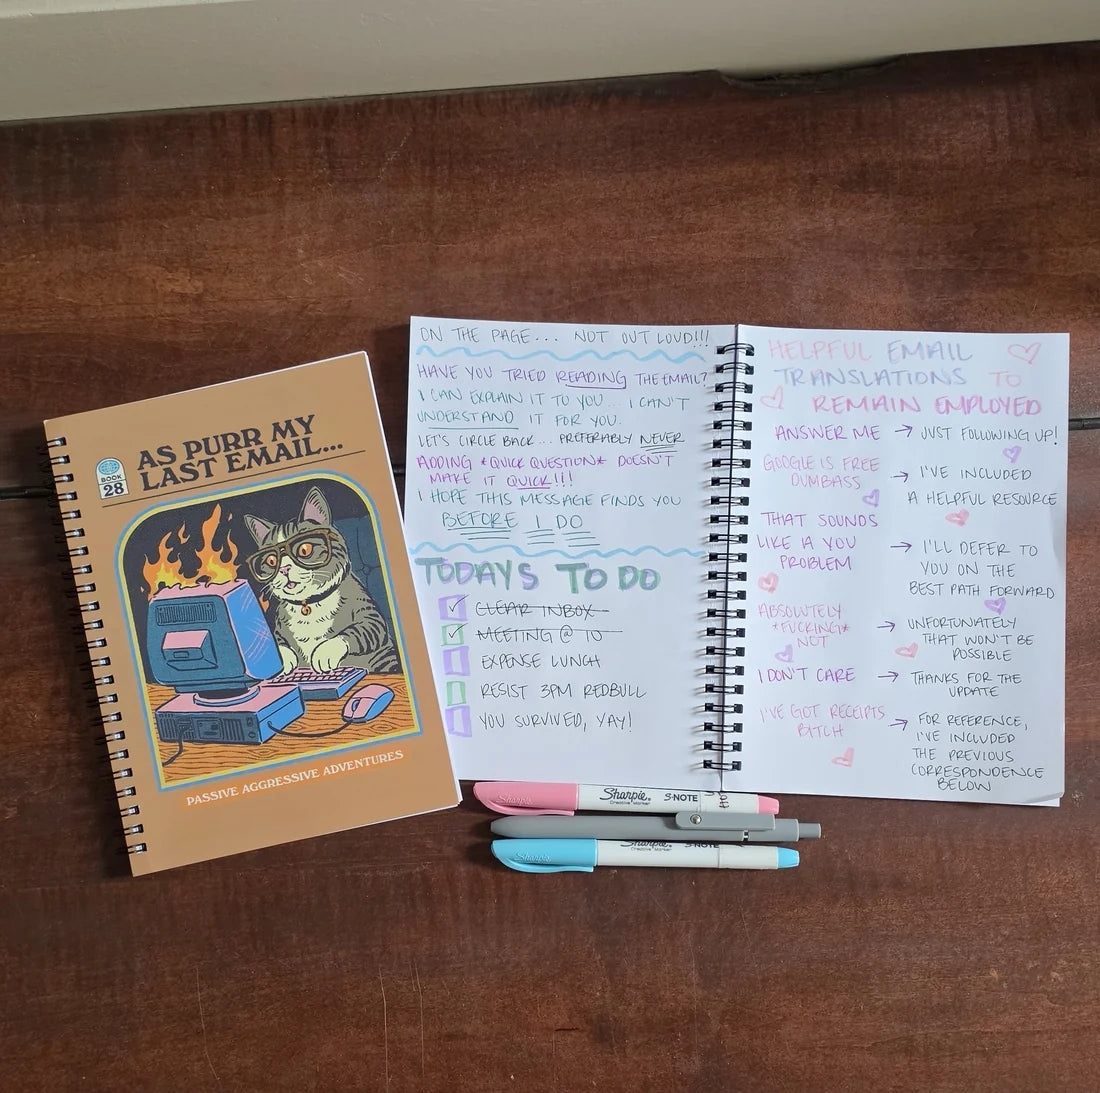 AS PURR MY
LAST EMAIL...
BOOK
28
PASSIVE AGGRESSIVE ADVENTURES
ON THE PAGE... NOT OUT LOUD!!!
HAVE YOU TRIED READING THE EMAIL?
I CAN EXPLAIN IT TO YOU... I CAN'T
UNDERSTAND IT FOR YOU.
LET'S CIRCLE BACK... PREFERABLY NEVER
ADDING *QUICK QUESTION* DOESN'T
MAKE IT QUICK!!!
I HOPE THIS MESSAGE FINDS YOU
BEFORE I DO
TODAYS TO DO
CLEAR INBOX
MEETING @ 10
EXPENSE LUNCH
RESIST 3PM REDBULL
YOU SURVIVED, YAY!
HELPFUL EMAIL
TRANSLATIONS TO
REMAIN EMPLOYED
ANSWER ME → JUST FOLLOWING UP!
GOOGLE IS FREE
DUMBASS → I'VE INCLUDED
A HELPFUL RESOURCE
THAT SOUNDS
LIKE A YOU
PROBLEM → I'LL DEFER TO
YOU ON THE
BEST PATH FORWARD
ABSOLUTELY
*FUCKING*
NOT → UNFORTUNATELY
THAT WON'T BE
POSSIBLE
I DON'T CARE → THANKS FOR THE
UPDATE
I'VE GOT RECEIPTS
BITCH → FOR REFERENCE,
I'VE INCLUDED
THE PREVIOUS
CORRESPONDENCE
BELOW
Sharpie
Sharpie
Creative Marker
S·NOTE
Sharpie
Sharpie
Creative Marker
S·NOTE